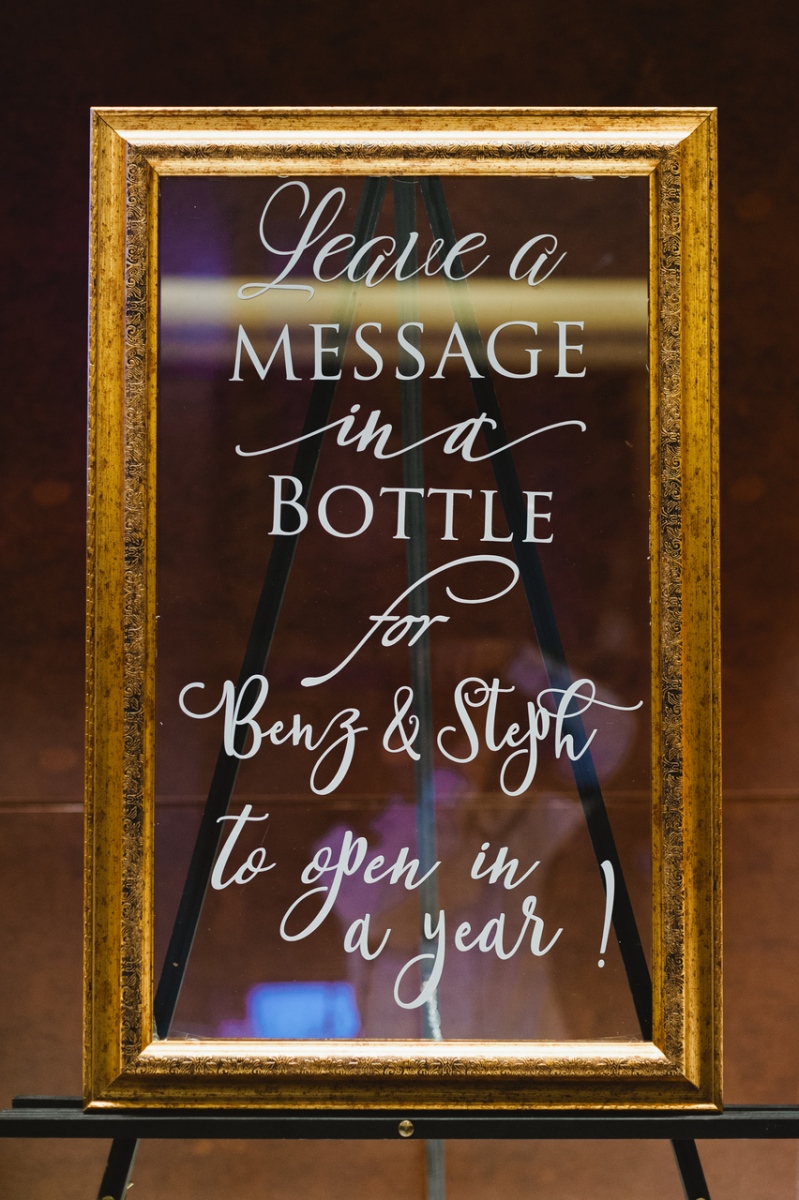 Leave a
MESSAGE
in a
BOTTLE
for
Benz & Steph
to open in
a year !